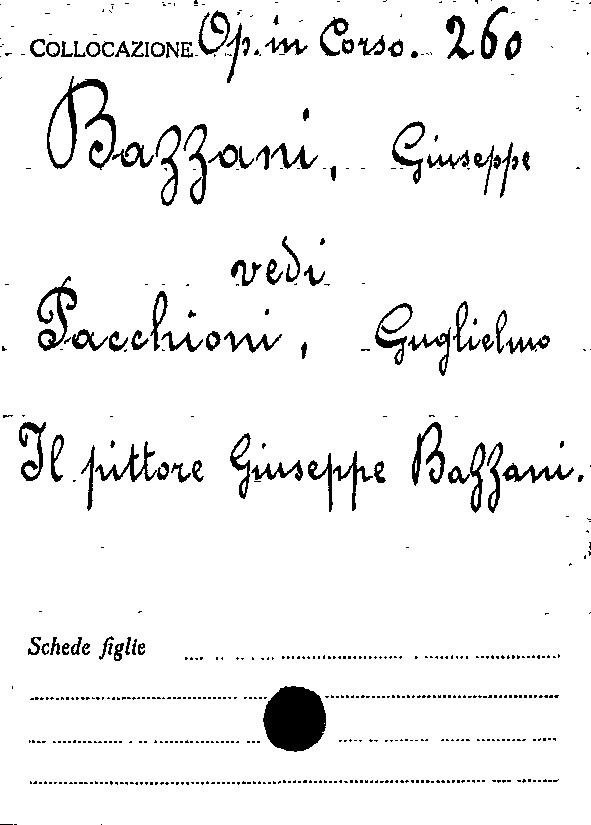 COLLOCAZIONE Op. in Corso. 260
Bazzani, Giuseppe
vedi
Pacchioni, Guglielmo
Il pittore Giuseppe Bazzani.
Schede figlie